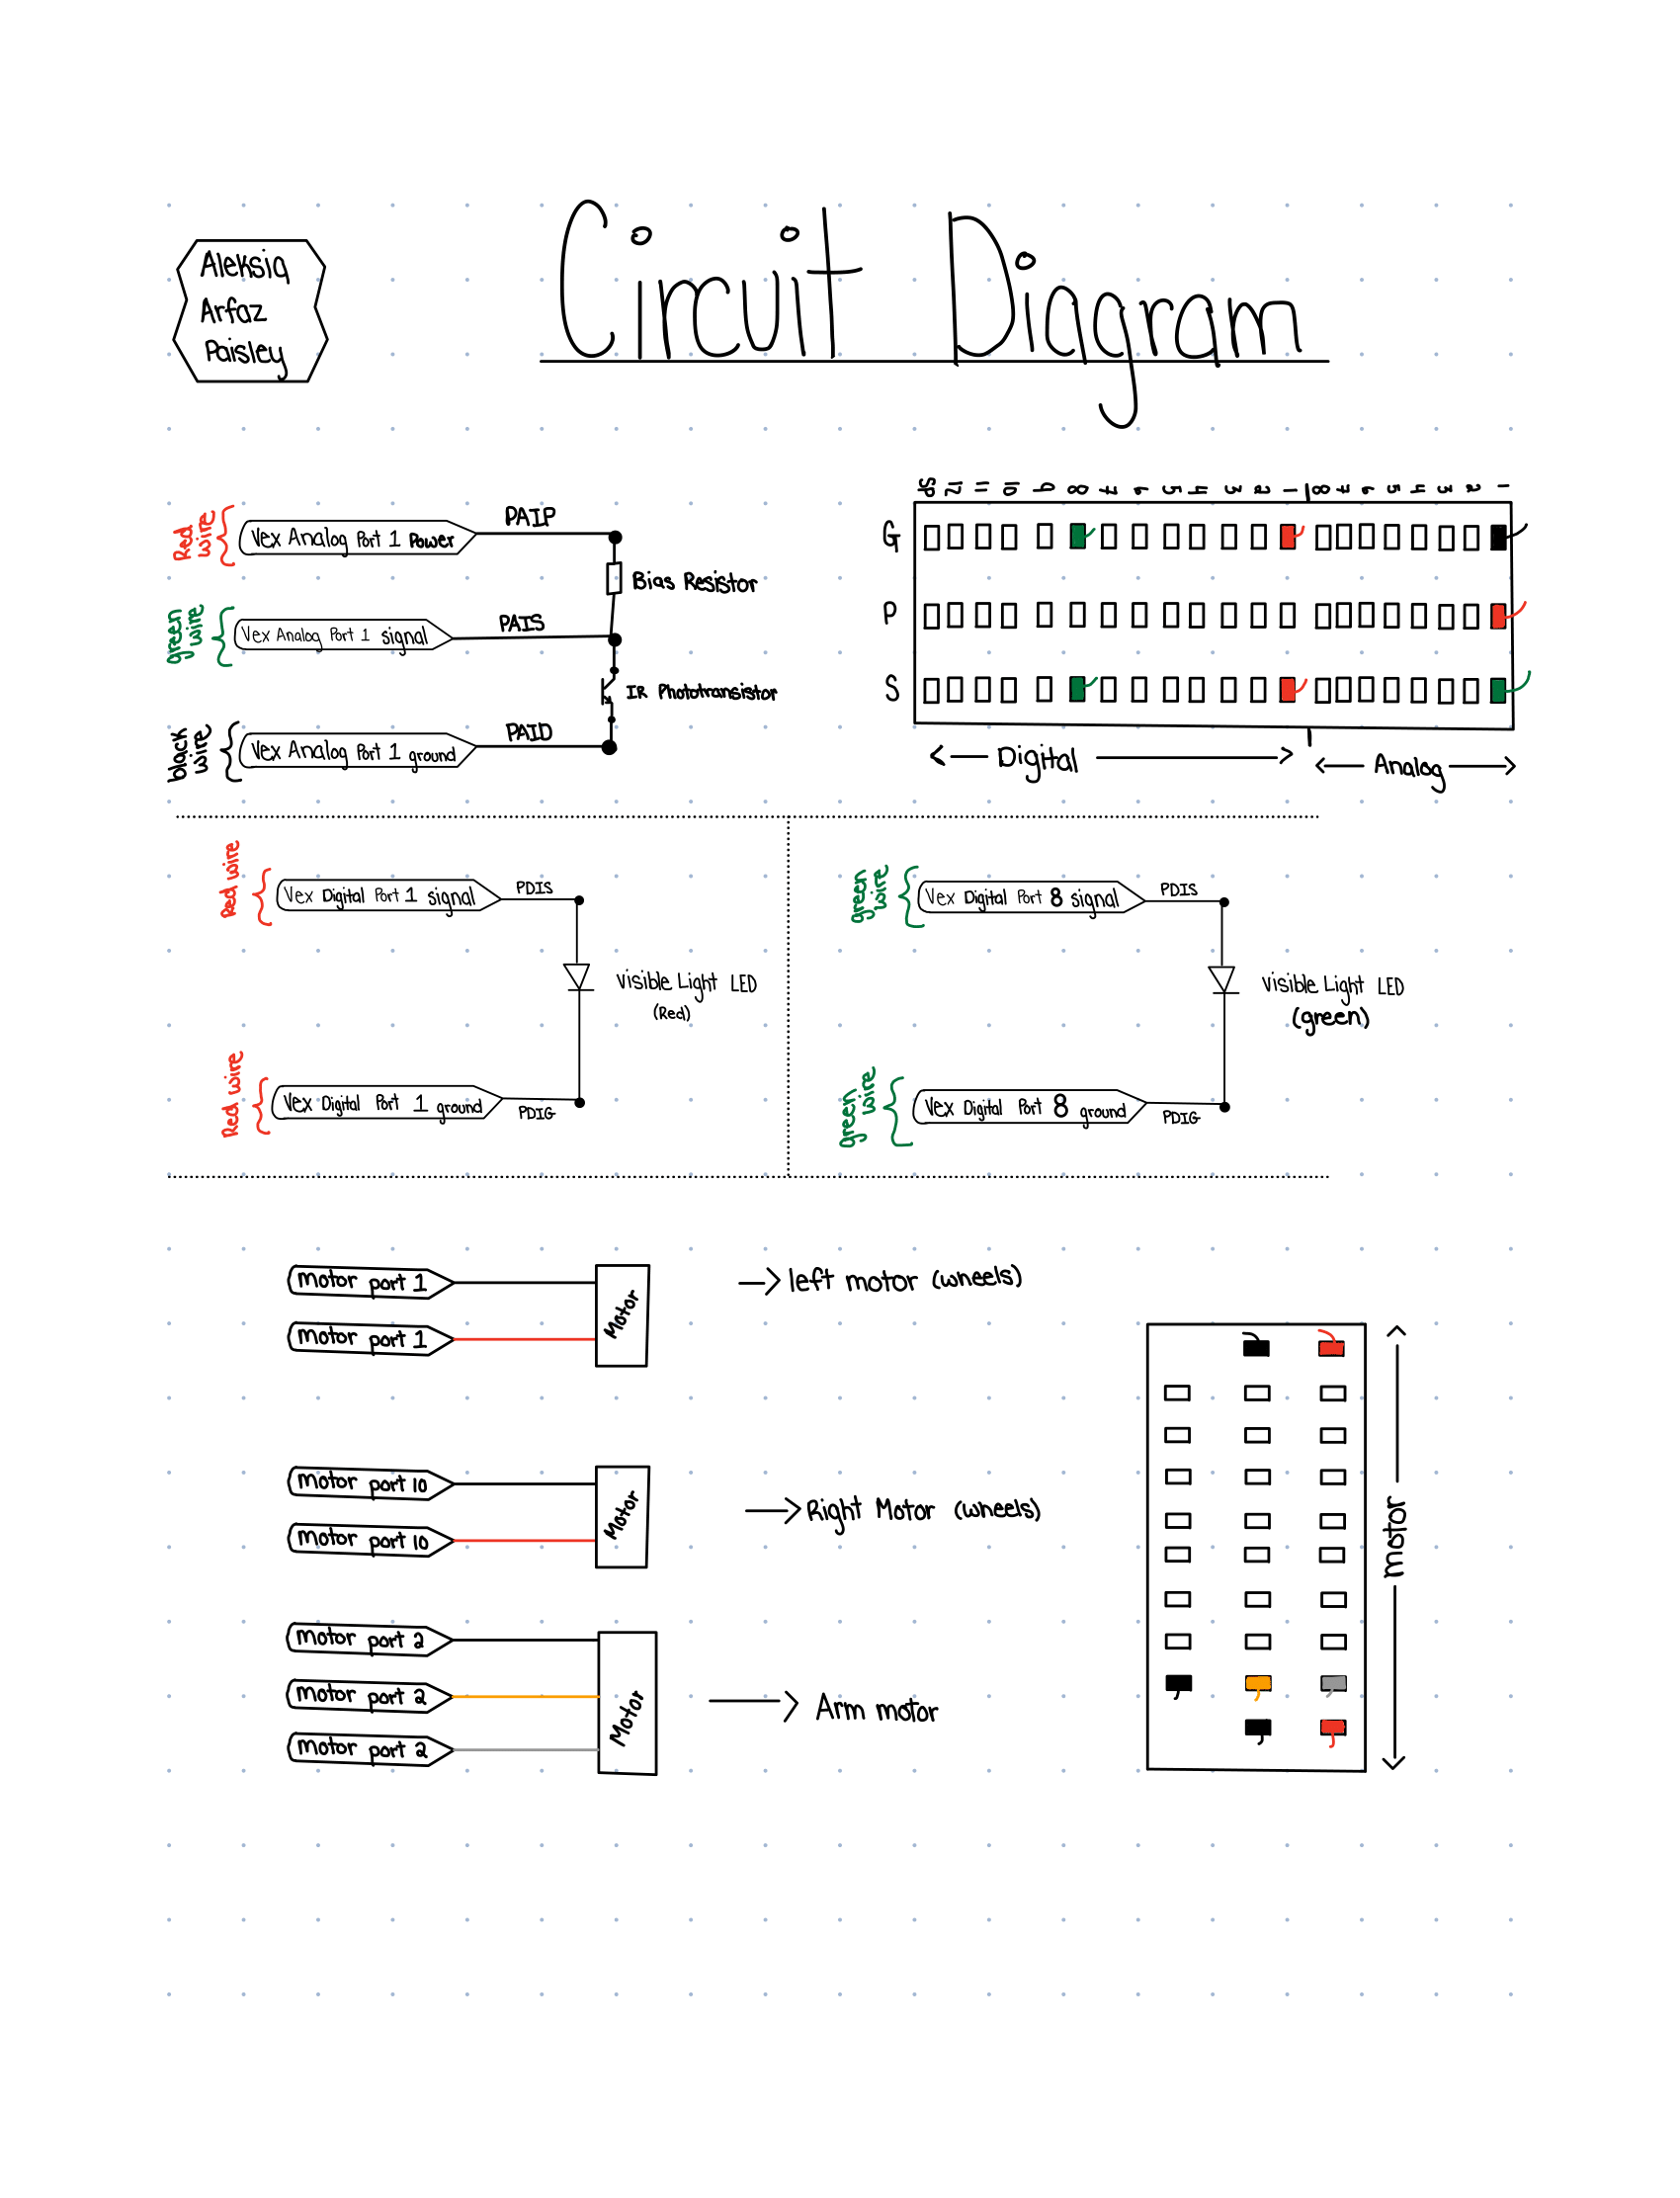 Circuit Diagram
Aleksia
Arfaz
Paisley
Red wire
Vex Analog Port 1 Power
PAIP
Bias Resistor
green wire
Vex Analog Port 1 signal
PAIS
IR Phototransistor
black wire
Vex Analog Port 1 ground
PAID
SP 12 11 10 9 8 7 6 5 4 3 2 1 8 7 6 5 4 3 2 1
G
P
S
Digital
Analog
Red wire
Vex Digital Port 1 signal
PDIS
Visible Light LED
(Red)
Red wire
Vex Digital Port 1 ground
PDIG
green wire
Vex Digital Port 8 signal
PDIS
Visible Light LED
(green)
green wire
Vex Digital Port 8 ground
PDIG
motor port 1
motor port 1
Motor
left motor (wheels)
motor port 10
motor port 10
Motor
Right Motor (wheels)
motor port 2
motor port 2
motor port 2
Motor
Arm motor
motor